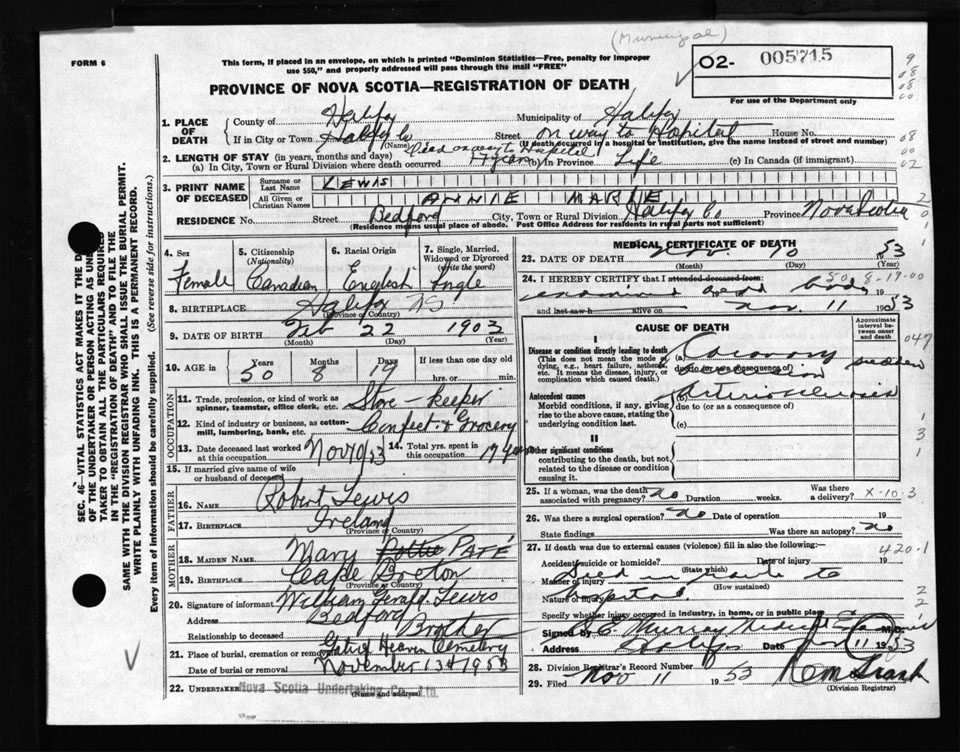 (Municipal)
FORM 6
This form, if placed in an envelope, on which is printed "Dominion Statistics—Free, penalty for improper use $50," and properly addressed will pass through the mail "FREE"
O2- 005715
For use of the Department only
PROVINCE OF NOVA SCOTIA—REGISTRATION OF DEATH
1. PLACE OF DEATH
County of Halifax Municipality of Halifax
If in City or Town Halifax Co (Name) Street on way to Hospital House No.
(If death occurred in a hospital or institution, give the name instead of street and number)
2. LENGTH OF STAY (in years, months and days) Died on way to Hospital
(a) In City, Town or Rural Division where death occurred 17 years (b) In Province Life (c) In Canada (if immigrant)
3. PRINT NAME OF DECEASED
Surname or Last Name LEWIS
All Given or Christian Names ANNIE MARIE
RESIDENCE No. Street Bedford City, Town or Rural Division Halifax Co Province Nova Scotia
(Residence means usual place of abode. Post Office Address for residents in rural parts not sufficient)
4. Sex Female
5. Citizenship (Nationality) Canadian
6. Racial Origin English
7. Single, Married, Widowed or Divorced (Write the word) Single
8. BIRTHPLACE Halifax NS
(Province or Country)
9. DATE OF BIRTH Feb 22 1903
(Month) (Day) (Year)
10. AGE in Years 50 Months 8 Days 19 If less than one day old hrs. or min.
OCCUPATION
11. Trade, profession, or kind of work as spinner, teamster, office clerk, etc. Store-keeper
12. Kind of industry or business, as cotton-mill, lumbering, bank, etc. Confect. & Grocery
13. Date deceased last worked at this occupation Nov 10/53
14. Total yrs. spent in this occupation 17 years
15. If married give name of wife or husband of deceased
FATHER
16. NAME Robert Lewis
17. BIRTHPLACE Ireland
(Province or Country)
MOTHER
18. MAIDEN NAME Mary PATE
19. BIRTHPLACE Cape Breton
(Province or Country)
20. Signature of informant William Gerald Lewis
Address Bedford
Relationship to deceased Brother
21. Place of burial, cremation or removal Gate of Heaven Cemetery
Date of burial or removal November 13th 1953
22. UNDERTAKER Nova Scotia Undertaking Co., Ltd.
(Name and address)
MEDICAL CERTIFICATE OF DEATH
23. DATE OF DEATH Nov. 10 53
(Month) (Day) (Year)
24. I HEREBY CERTIFY that I attended deceased from: 50 8-19-00
examined dead body 19
and last saw h alive on Nov 11 1953
CAUSE OF DEATH
Approximate interval between onset and death
I
Disease or condition directly leading to death
(This does not mean the mode of dying, e.g., heart failure, asthenia, etc. It means the disease, injury, or complication which caused death.)
(a) Coronary occlusion sudden
due to (or as a consequence of)
Antecedent causes
Morbid conditions, if any, giving rise to the above cause, stating the underlying condition last.
(b) Arteriosclerosis
due to (or as a consequence of)
(c)
II
Other significant conditions contributing to the death, but not related to the disease or condition causing it.
25. If a woman, was the death associated with pregnancy? no Duration weeks. Was there a delivery? X-10-3
26. Was there a surgical operation? no Date of operation 19
State findings Was there an autopsy? no
27. If death was due to external causes (violence) fill in also the following:— 420-1
Accident, suicide or homicide? (State which) Date of injury 19
Manner of injury Died en route to (How sustained)
Nature of injury hospital
Specify whether injury occurred in industry, in home, or in public place
Signed by Murray Medical M.D.
Address Halifax Date Nov 11 1953
28. Division Registrar's Record Number
29. Filed Nov 11 1953
(Division Registrar)
SEC. 46—VITAL STATISTICS ACT MAKES IT THE
OF THE UNDERTAKER OR PERSON ACTING AS
TAKER TO OBTAIN ALL THE PARTICULARS REQUIRED
IN THE "REGISTRATION OF DEATH" AND TO FILE THE
SAME WITH THE DIVISION REGISTRAR WHO SHALL ISSUE THE BURIAL PERMIT.
WRITE PLAINLY WITH UNFADING INK. THIS IS A PERMANENT RECORD.
Every item of information should be carefully supplied. (See reverse side for instructions.)
9
08
08
00
08
00
02
2
0
1
047
1
3
1
2
2